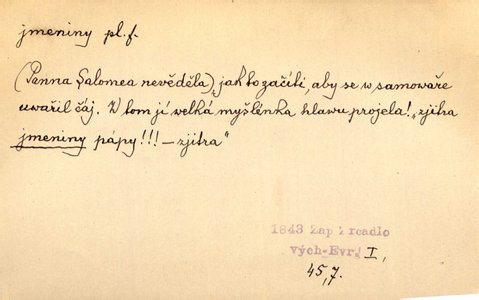 jmeniny pl. f.
(Panna Salomea nevěděla), jak to začíti, aby se w samoware
uwařil čaj. W tom jí welká myšlénka hlawu projela! „zjitra
jmeniny pápy!!! – zjitra"
1843 Zap Zrcadlo
vých-Evr. I,
45,7.